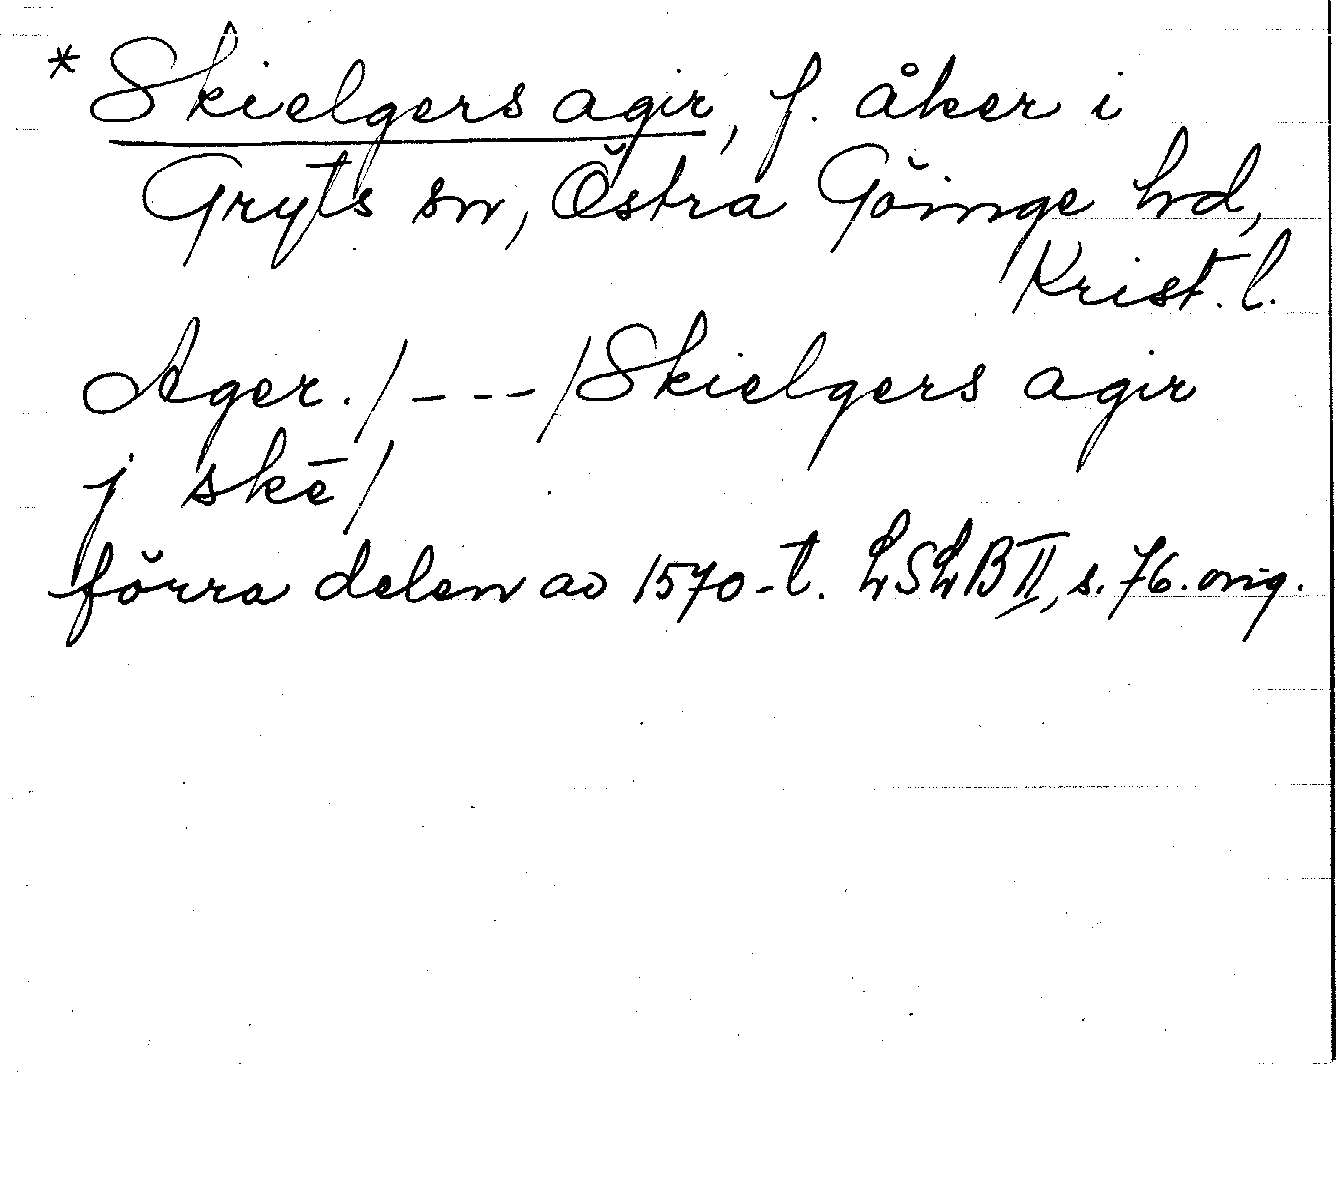 * Skielgers agir, f. åker i
Gryts sn, Östra Göinge hd,
Krist. l.
Ager. / - - - / Skielgers agir
j skē /
förra delen av 1570-t. LSLB II, s. 76. orig.